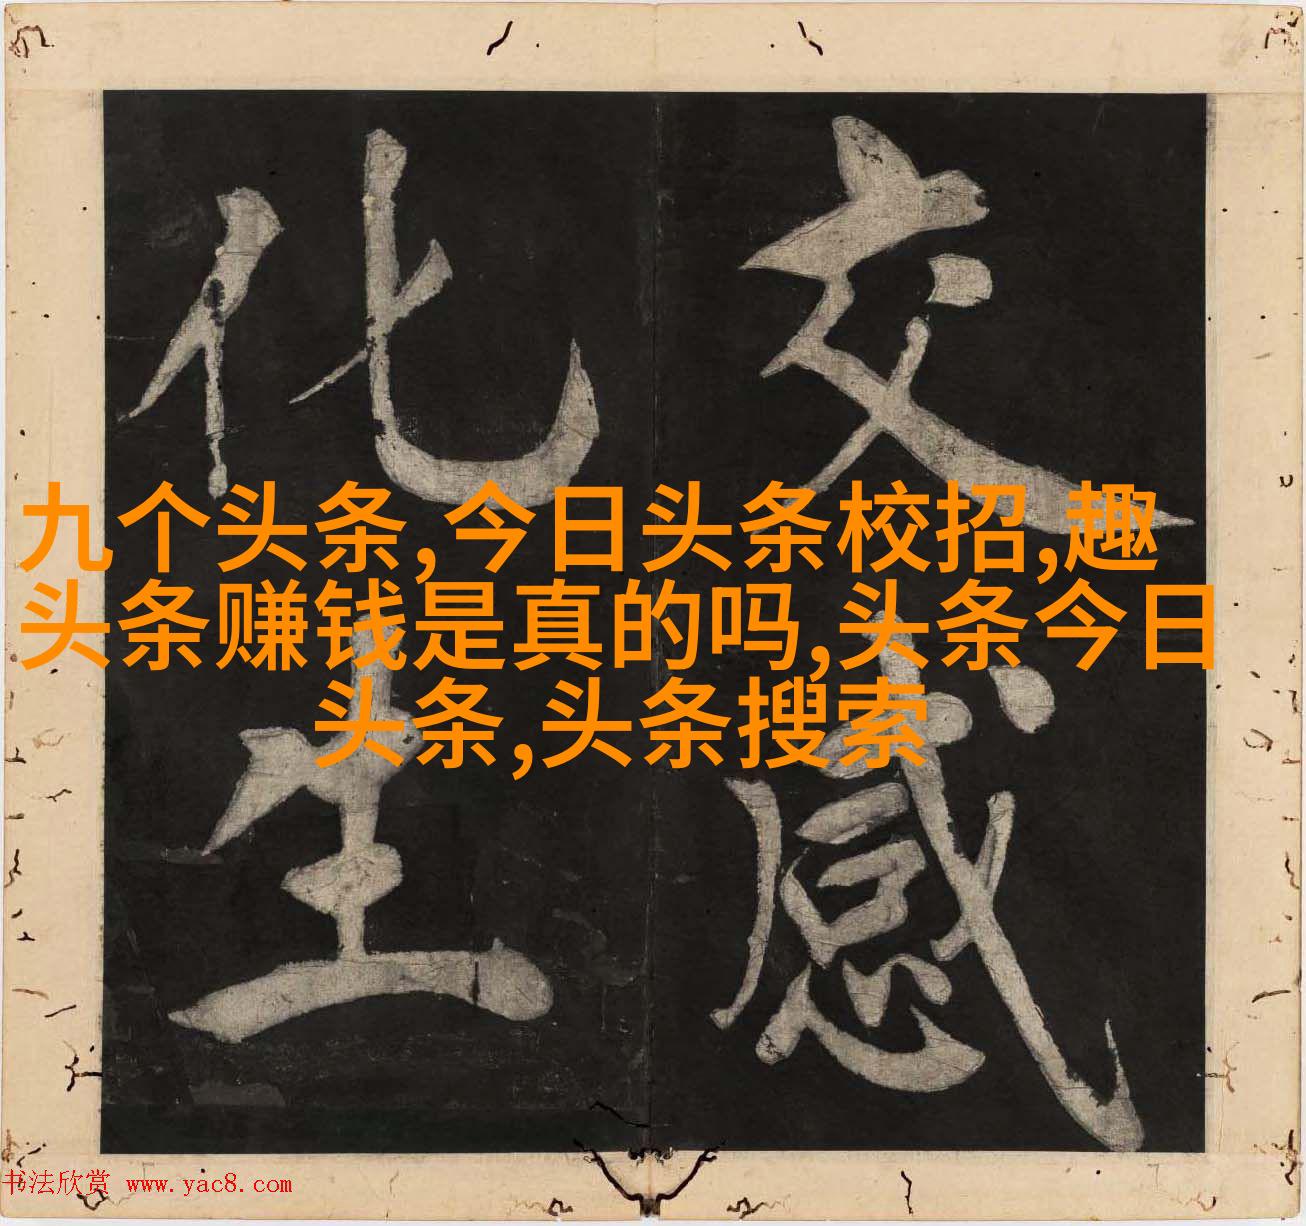 交感
化生
九个头条,今日头条校招,趣
头条赚钱是真的吗,头条今日
头条,头条搜索
书法欣赏 www.yac8.com